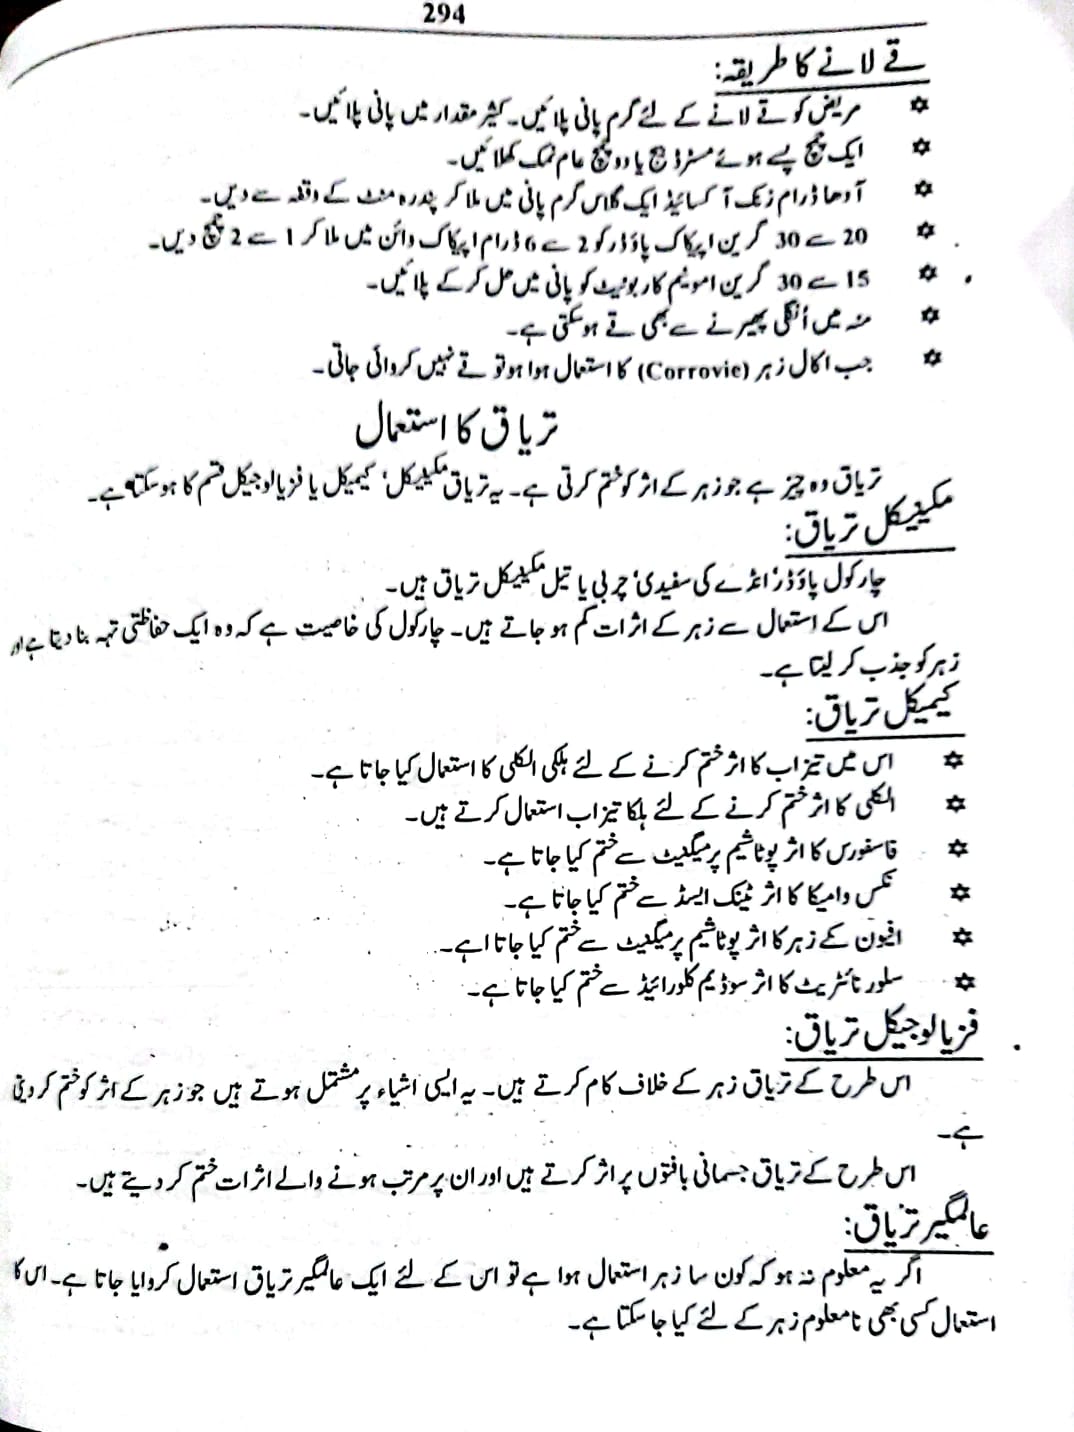 294
قے لانے کا طریقہ:
✡ مریض کو قے لانے کے لئے گرم پانی پلائیں۔ کثیر مقدار میں پانی پلائیں۔
✡ ایک چمچ پسے ہوئے مسٹرڈ بیج یا دو چمچ عام نمک کھلائیں۔
✡ آدھا ڈرام زنک آکسائیڈ ایک گلاس گرم پانی میں ملا کر پندرہ منٹ کے وقفہ سے دیں۔
✡ 20 سے 30 گرین اپیکاک پاؤڈر کو 2 سے 6 ڈرام اپیکاک وائن میں ملا کر 1 سے 2 چمچ دیں۔
✡ 15 سے 30 گرین امونیم کاربونیٹ کو پانی میں حل کر کے پلائیں۔
✡ منہ میں اُنگلی پھیرنے سے بھی قے ہوسکتی ہے۔
✡ جب اکال زہر (Corrovie) کا استعمال ہوا ہو تو قے نہیں کروائی جاتی۔
تریاق کا استعمال
تریاق وہ چیز ہے جو زہر کے اثر کو ختم کرتی ہے۔ یہ تریاق مکینیکل، کیمیکل یا فزیالوجیکل قسم کا ہوسکتا ہے۔
مکینیکل تریاق:
چارکول پاؤڈر، انڈے کی سفیدی، چربی یا تیل مکینیکل تریاق ہیں۔
اس کے استعمال سے زہر کے اثرات کم ہو جاتے ہیں۔ چارکول کی خاصیت ہے کہ وہ ایک حفاظتی تہہ بنا دیتا ہے اور
زہر کو جذب کر لیتا ہے۔
کیمیکل تریاق:
✡ اس میں تیزاب کا اثر ختم کرنے کے لئے ہلکی الکلی کا استعمال کیا جاتا ہے۔
✡ الکلی کا اثر ختم کرنے کے لئے ہلکا تیزاب استعمال کرتے ہیں۔
✡ فاسفورس کا اثر پوٹاشیم پرمیگنیٹ سے ختم کیا جاتا ہے۔
✡ نکس وامیکا کا اثر ٹینک ایسڈ سے ختم کیا جاتا ہے۔
✡ افیون کے زہر کا اثر پوٹاشیم پرمیگنیٹ سے ختم کیا جاتا اہے۔
✡ سلور نائٹریٹ کا اثر سوڈیم کلورائیڈ سے ختم کیا جاتا ہے۔
فزیالوجیکل تریاق:
اس طرح کے تریاق زہر کے خلاف کام کرتے ہیں۔ یہ ایسی اشیاء پر مشتمل ہوتے ہیں جو زہر کے اثر کو ختم کر دیتی
ہے۔
اس طرح کے تریاق جسمانی بافتوں پر اثر کرتے ہیں اور ان پر مرتب ہونے والے اثرات ختم کر دیتے ہیں۔
عالمگیر تریاق:
اگر یہ معلوم نہ ہو کہ کون سا زہر استعمال ہوا ہے تو اس کے لئے ایک عالمگیر تریاق استعمال کروایا جاتا ہے۔ اس کا
استعمال کسی بھی نامعلوم زہر کے لئے کیا جاسکتا ہے۔